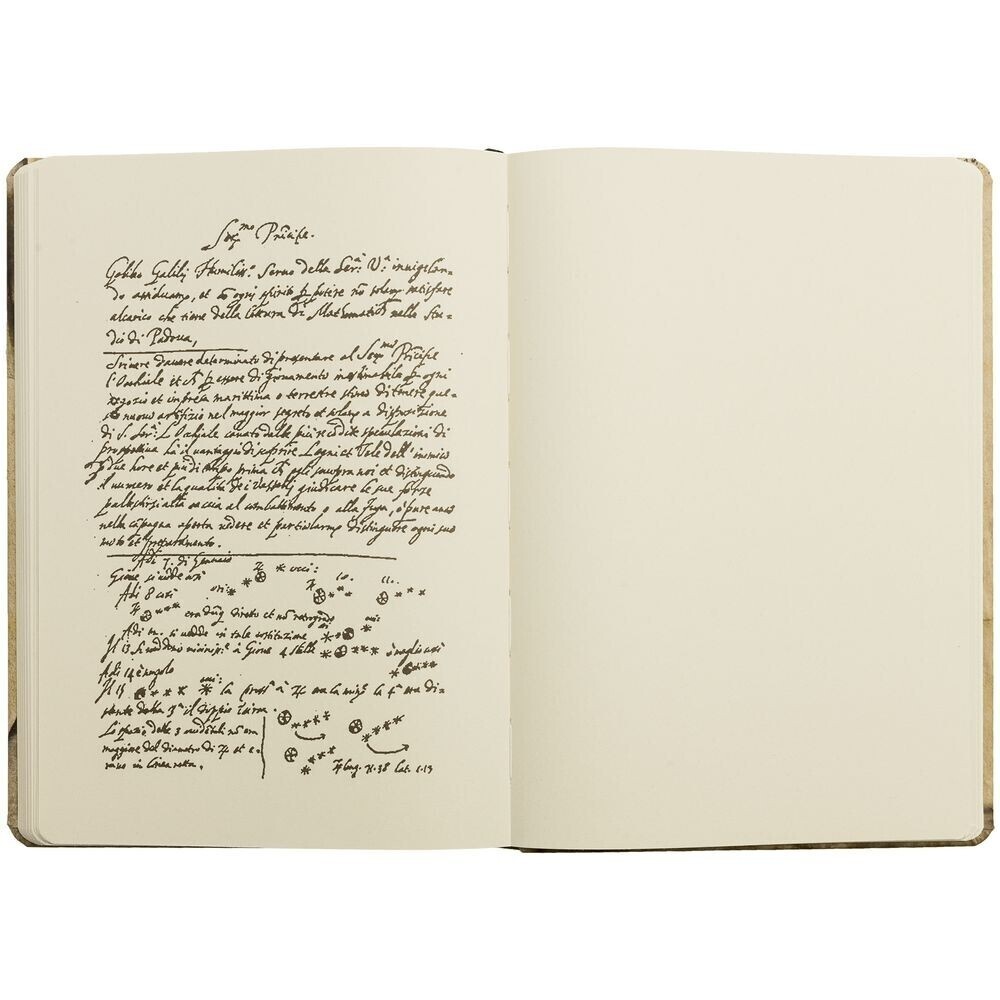 Ser.mo Prīcipe.
Galileo Galilej Humiliss.o Servo della Ser.a V.a invigilan-
do assiduam.te, et cō ogni spirito p potere nō solam.te satisfare
al carico che tiene della lettura di Mathematich nello Stu-
dio di Padova,
Scrivere d'avere determinato di presentare al Ser.mo Prīcipe
l'Occhiale et p essere di giovamento inestimabile p ogni
negozio et impresa marittima o terrestre stimo di tenere que-
sto nuovo artifizio nel maggior segreto et solam.te a dispositione
di S. Ser.a L'Occhiale cavato dalle più recōdite speculazioni di
prospettiva hà il vantaggio di scoprire Legni et Vele dell'inimico
p due hore et più di tempo prima ch egli scuopra noi et distinguendo
il numero et la qualità de i Vasselli giudicare le sue forze
pallestirsi alla caccia al combattimento o alla fuga, o pure anco
nella cāpagna aperta vedere et particolarm.te distinguere ogni suo
moto et preparamento.
Adi 7. di Gennaio
Giove si vede così occi:
Adi 8 così ori: 10. 11.
era dūq diretto et nō retrogrado
Adi 12. si vedde in tale costituzione
Il 13 si veddono vicinis.e à Giove 4 stelle ò meglio così
Adi 14 è nugolo
Il 15 la pross.a à ♃ era la min.e la 4.a era di-
stante dalla 3.a il doppio incirca.
Lo spazio delle 3 occidētali nō era
maggiore del diametro di ♃ et e-
rano in linea retta.
♃ long. 71.38 lat. 1.13